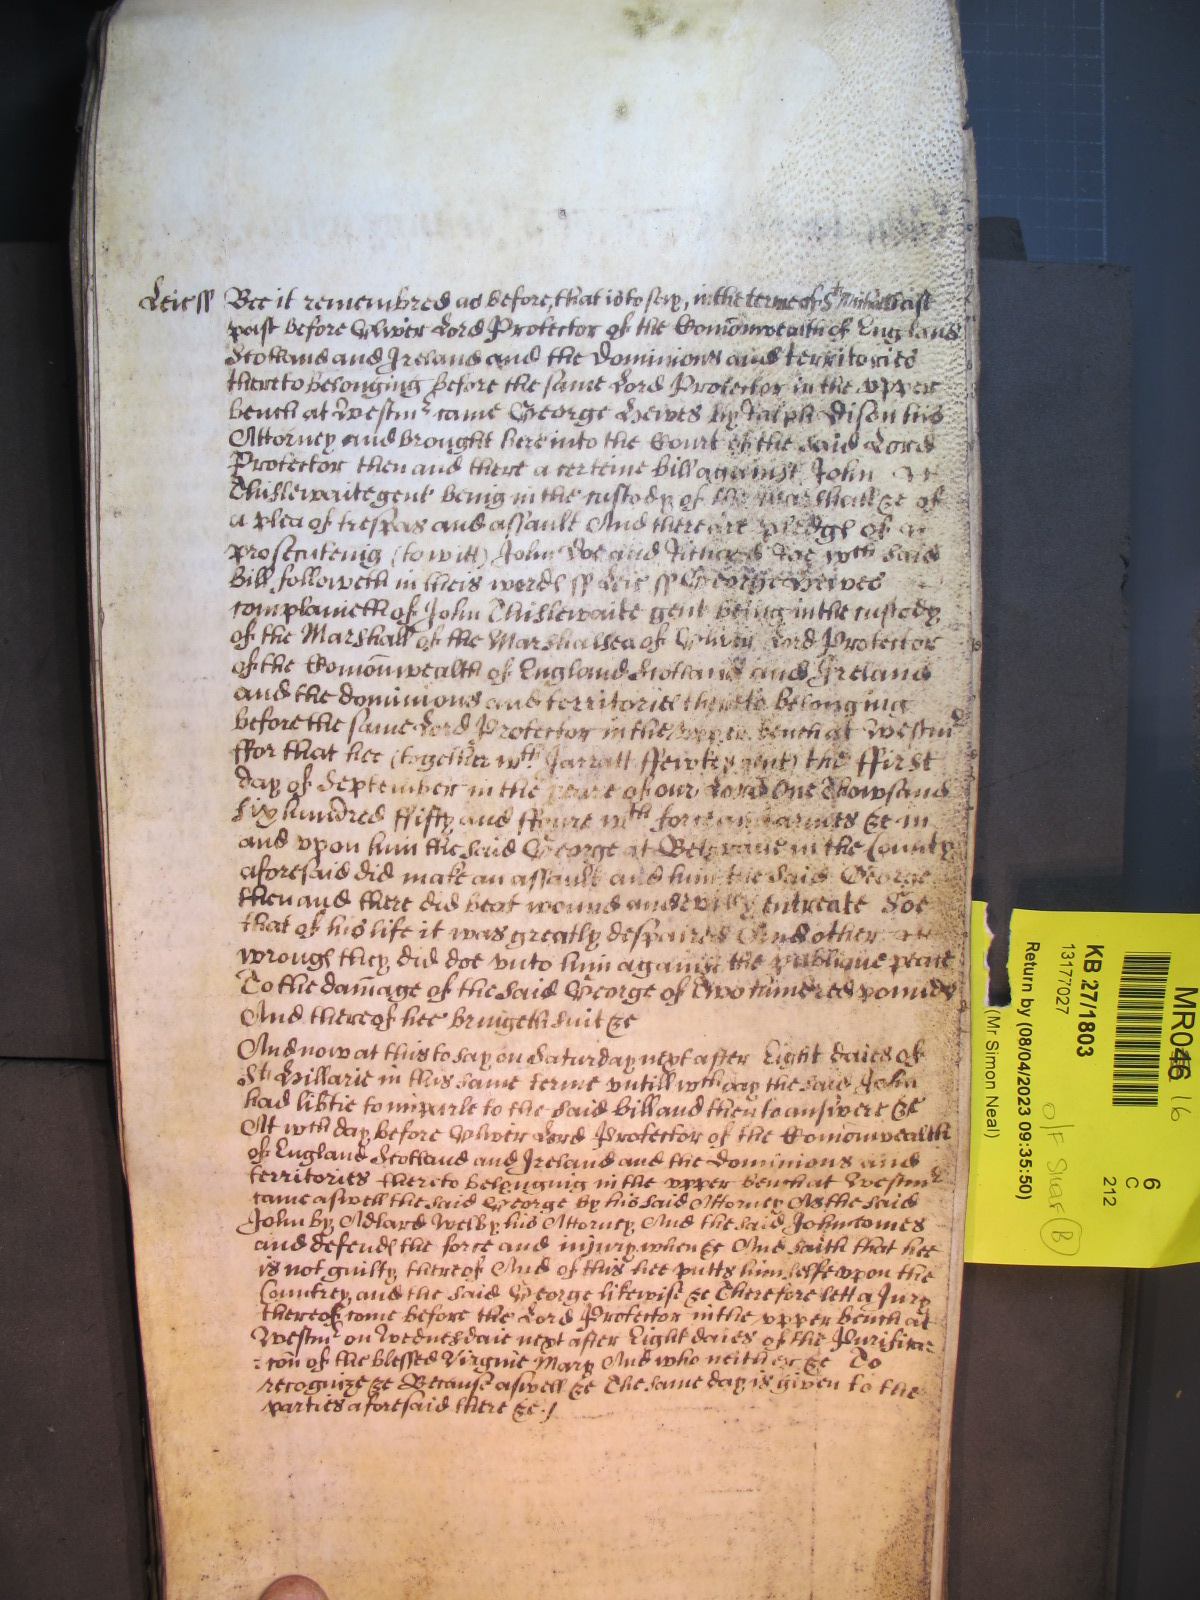 Leic ss Bee it remembred as before, that is to say, in the terme of St Michaell last
past before Oliver Lord Protector of the Com̄onwealth of England
Scotland and Ireland and the Dominions and territories
thereto belonging before the same Lord Protector in the upper
bench at Westmr came George Hewes by Ralph his
Attorney and brought here into the Court of the said Lord
Protector then and there a certeine bill against John
Thislewaite gent being in the custody of the Marshall &c of
a plea of trespas and assault And there are pledges of
prosecuteing (to witt) John Doe and Richard Roe wch said
Bill followeth in theis wordes ss Leic ss George Hewes
complaineth of John Thislewaite gent being in the custody
of the Marshall of the Marshalsea of Oliver Lord Protector
of the Com̄onwealth of England Scotland and Ireland
and the dominions and territories thereto belonging
before the same Lord Protector in the upper bench at Westmr
ffor that hee (together wth Jarratt ffewkes gent) the ffirst
day of September in the yeare of our Lord One Thowsand
six hundred ffifty and ffoure wth force and armes &c in
and upon him the said George at Belgrave in the County
aforesaid did make an assault and him the said George
then and there did beat wound and evilly entreate Soe
that of his life it was greatly despaired And other
wronges they did doe unto him against the publique peace
To the damage of the said George of Two hundred pounds
And thereof hee bringeth suit &c
And now at this to say on Saturday next after Eight daies of
St Hillarie in this same terme untill wch day the said John
had lib̄tie to imparle to the said bill and then to answere &c
At wch day before Oliver Lord Protector of the Com̄onwealth
of England Scotland and Ireland and the Dominions and
territories thereto belonging in the upper bench at Westmr
came aswell the said George by his said Attorney As the said
John by Adlard Welby his Attorney And the said John comes
and defendes the force and injury when &c And saith that hee
is not guilty thereof And of this hee putts himselfe upon the
Countrey and the said George likewise &c Therefore lett a Jury
thereof come before the Lord Protector in the upper bench at
Westmr on Wednesdaie next after Eight daies of the Purifica
con of the blessed Virgine Mary And who neither &c To
recognize &c Because aswell &c The same day is given to the
parties aforesaid there &c
MR046 16
6
C
212
KB 27/1803
13177027
O/F Shelf B
Return by (08/04/2023 09:35:50)
(Mr Simon Neal)